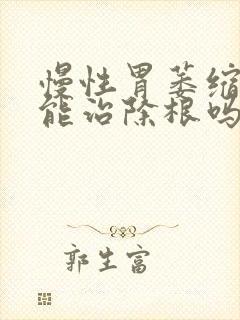 慢性胃萎缩
能治除根吗
郭生富